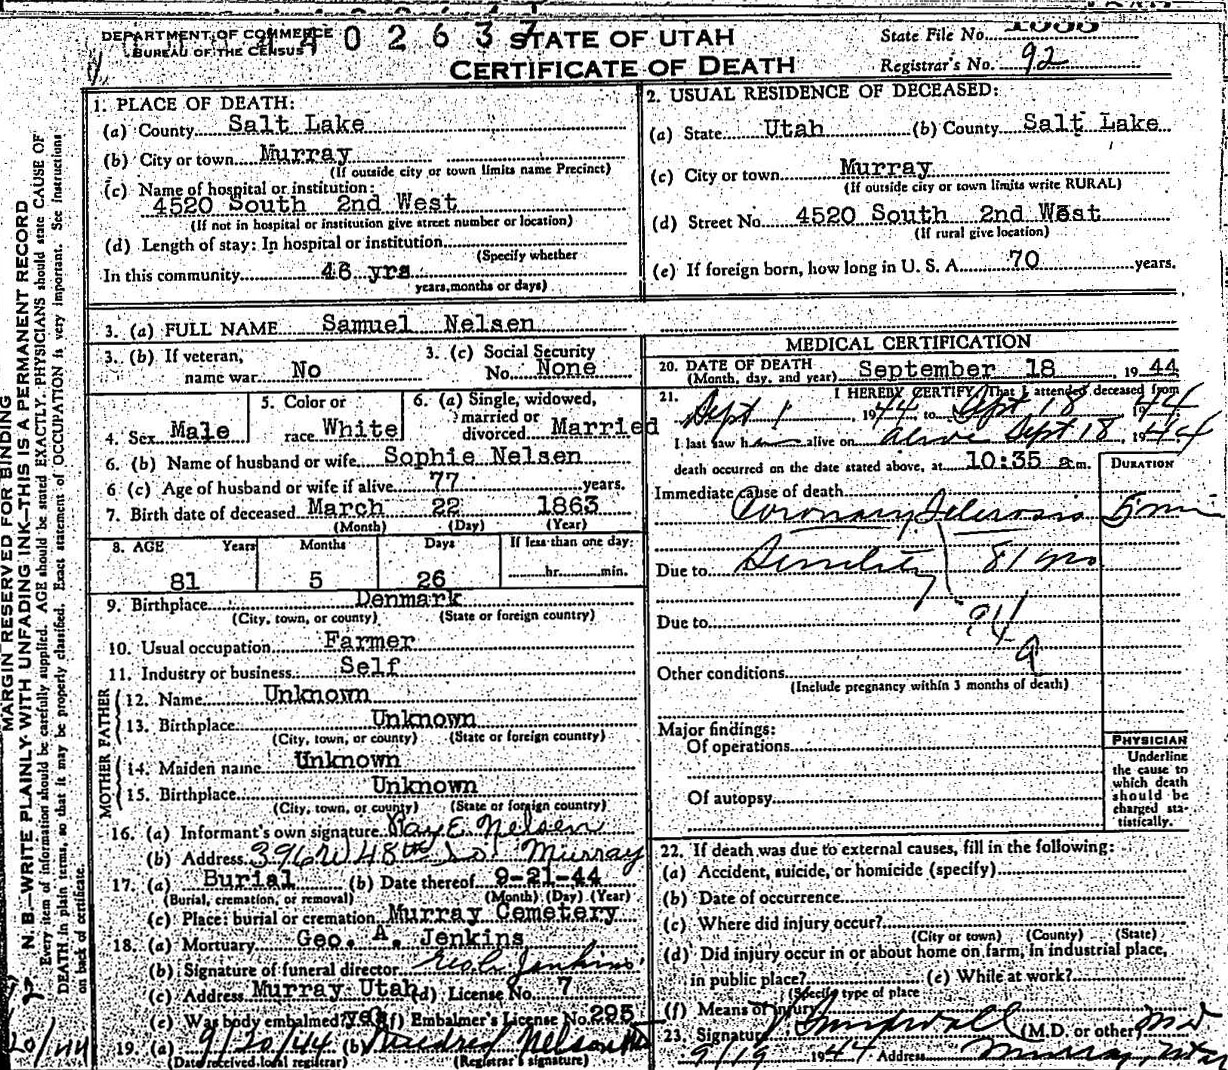 DEPARTMENT OF COMMERCE
BUREAU OF THE CENSUS
0 2 6 3 7
STATE OF UTAH
CERTIFICATE OF DEATH
State File No.
Registrar's No. 92
1. PLACE OF DEATH:
(a) County Salt Lake
(b) City or town Murray
(If outside city or town limits name Precinct)
(c) Name of hospital or institution:
4520 South 2nd West
(If not in hospital or institution give street number or location)
(d) Length of stay: In hospital or institution
(Specify whether
In this community 46 yrs
years, months or days)
2. USUAL RESIDENCE OF DECEASED:
(a) State Utah (b) County Salt Lake
(c) City or town Murray
(If outside city or town limits write RURAL)
(d) Street No. 4520 South 2nd West
(If rural give location)
(e) If foreign born, how long in U. S. A. 70 years.
3. (a) FULL NAME Samuel Nelsen
3. (b) If veteran, name war No
3. (c) Social Security No. None
4. Sex Male
5. Color or race White
6. (a) Single, widowed, married or divorced Married
6. (b) Name of husband or wife Sophie Nelsen
6 (c) Age of husband or wife if alive 77 years.
7. Birth date of deceased March 22 1863
(Month) (Day) (Year)
8. AGE Years Months Days If less than one day
81 5 26 hr. min.
9. Birthplace Denmark
(City, town, or county) (State or foreign country)
10. Usual occupation Farmer
11. Industry or business Self
FATHER
12. Name Unknown
13. Birthplace Unknown
(City, town, or county) (State or foreign country)
MOTHER
14. Maiden name Unknown
15. Birthplace Unknown
(City, town, or county) (State or foreign country)
16. (a) Informant's own signature Ray E. Nelsen
(b) Address 396 W 48th So. Murray
17. (a) Burial (b) Date thereof 9-21-44
(Burial, cremation, or removal) (Month) (Day) (Year)
(c) Place: burial or cremation Murray Cemetery
18. (a) Mortuary Geo. A. Jenkins
(b) Signature of funeral director Jenkins
(c) Address Murray Utah (d) License No. 7
(e) Was body embalmed? yes (f) Embalmer's License No. 295
19. (a) 9/20/44 (b) Mildred Nelson
(Date received local registrar) (Registrar's signature)
MEDICAL CERTIFICATION
20. DATE OF DEATH
(Month, day, and year) September 18, 1944
21. I HEREBY CERTIFY, That I attended deceased from
Sept 1, 1944 to Sept 18 1944
I last saw him alive on alive Sept 18 1944
death occurred on the date stated above, at 10:35 a.m.
DURATION
Immediate cause of death
Coronary Sclerosis 5 min
Due to Senility 81 yrs
Due to
94
a
Other conditions
(Include pregnancy within 3 months of death)
Major findings:
Of operations
Of autopsy
PHYSICIAN
Underline
the cause to
which death
should be
charged sta-
tistically.
22. If death was due to external causes, fill in the following:
(a) Accident, suicide, or homicide (specify)
(b) Date of occurrence
(c) Where did injury occur?
(City or town) (County) (State)
(d) Did injury occur in or about home on farm, in industrial place,
in public place? (e) While at work?
(Specify type of place
(f) Means of injury
23. Signature (M.D. or other) MD
9/19 1944 Address Murray, Utah
MARGIN RESERVED FOR BINDING
N. B.—WRITE PLAINLY WITH UNFADING INK—THIS IS A PERMANENT RECORD
Every item of information should be carefully supplied. AGE should be stated EXACTLY. PHYSICIANS should state CAUSE OF
DEATH in plain terms, so that it may be properly classified. Exact statement of OCCUPATION is very important. See Instructions
on back of certificate.